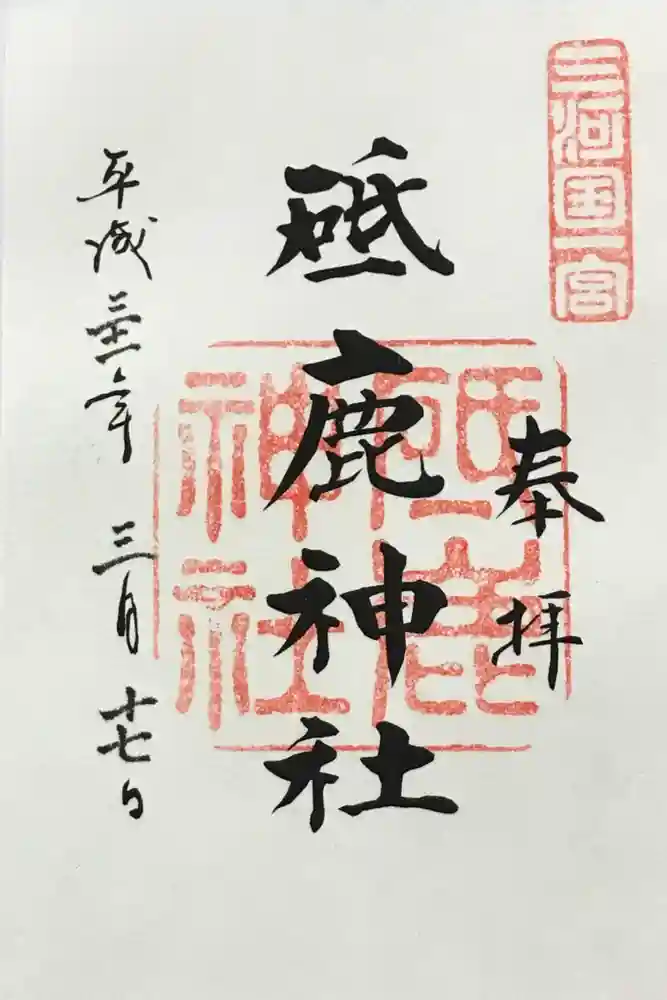 三河国一宮
奉拝
砥鹿神社
砥鹿
神社
平成三十一年三月十七日